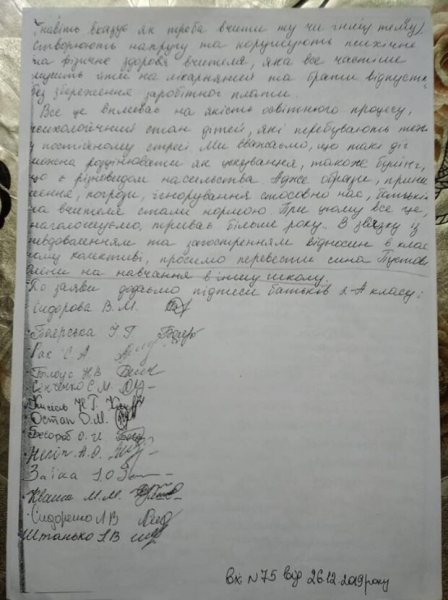 (навіть вказує як треба вчити ту чи іншу тему)
створюють напругу та порушують психічне
та фізичне здоров'я вчителя, яка все частіше
йти на лікарняний та брати відпустку
без збереження заробітної плати.
Все це впливає на якість освітнього процесу,
психологічний стан дітей, які перебувають також
у постійному стресі. Ми вважаємо, що такі дії
можна розцінювати як цькування, також булінг,
що є різновидом насильства. Адже образи, прини
ження, погрози, ігнорування стосовно нас, батьків
та вчителя стали нормою. При цьому все це,
наголошуємо, триває більше року. В зв'язку із
невдоволенням та загостренням відносин в клас
ному колективі, просимо перевести сина
на навчання в іншу школу.
До заяви додаємо підписи батьків 2-А класу:
Сидорова В.М.
Боярська
Гас С.А
Білоус Н.В
Сінченко Є.М.
Кисіль Н.Г.
Остап О.М.
О.И
А.О.
Заїка Ю.О
Кваша М.М.
Сидоренко А В
Штанько І В
Вх N75 від 26.12.2019 року